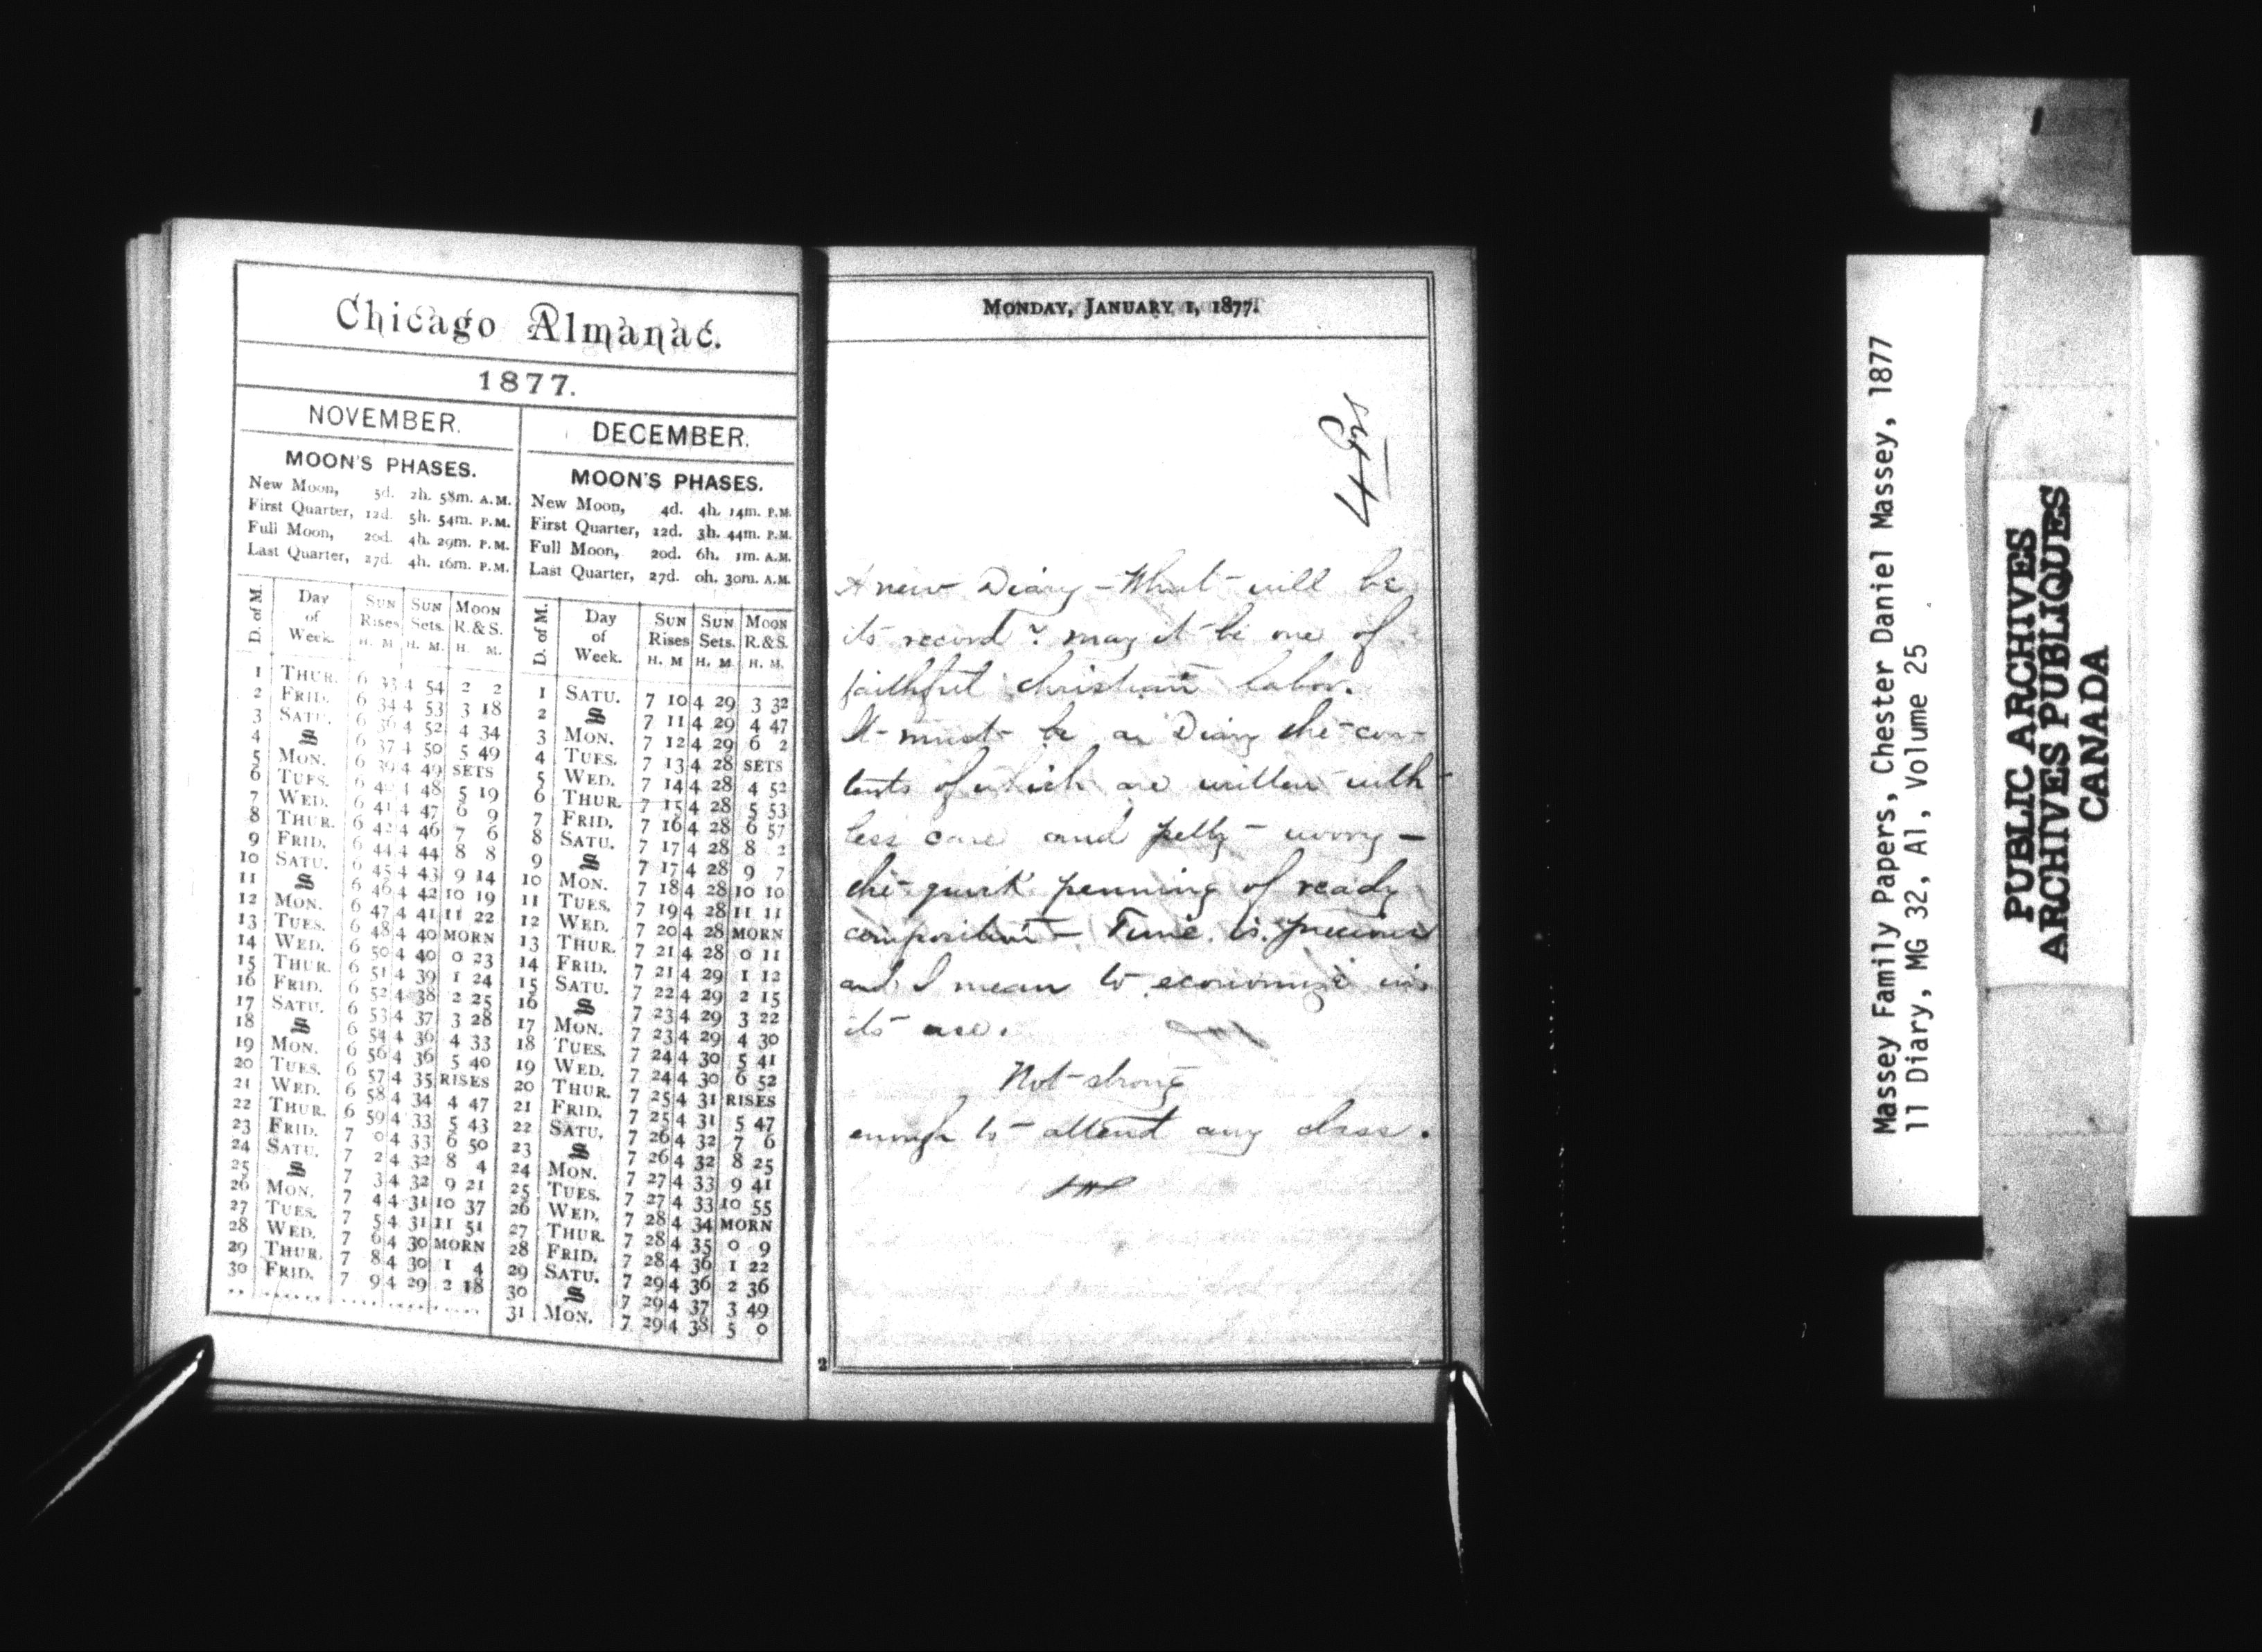 Chicago Almanac.
1877.
NOVEMBER.
MOON'S PHASES.
New Moon, 5d. 2h. 58m. A.M.
First Quarter, 12d. 5h. 54m. P.M.
Full Moon, 20d. 4h. 29m. P.M.
Last Quarter, 27d. 4h. 16m. P.M.
D. of M. Day of Week. SUN Rises H. M SUN Sets. H. M. MOON R.&S. H. M.
1 THUR. 6 33 4 54 2 2
2 FRID. 6 34 4 53 3 18
3 SATU. 6 36 4 52 4 34
4 S 6 37 4 50 5 49
5 MON. 6 39 4 49 SETS
6 TUES. 6 40 4 48 5 19
7 WED. 6 41 4 47 6 9
8 THUR. 6 42 4 46 7 6
9 FRID. 6 44 4 44 8 8
10 SATU. 6 45 4 43 9 14
11 S 6 46 4 42 10 19
12 MON. 6 47 4 41 11 22
13 TUES. 6 48 4 40 MORN
14 WED. 6 50 4 40 0 23
15 THUR. 6 51 4 39 1 24
16 FRID. 6 52 4 38 2 25
17 SATU. 6 53 4 37 3 28
18 S 6 54 4 36 4 33
19 MON. 6 56 4 36 5 40
20 TUES. 6 57 4 35 RISES
21 WED. 6 58 4 34 4 47
22 THUR. 6 59 4 33 5 43
23 FRID. 7 0 4 33 6 50
24 SATU. 7 2 4 32 8 4
25 S 7 3 4 32 9 21
26 MON. 7 4 4 31 10 37
27 TUES. 7 5 4 31 11 51
28 WED. 7 6 4 30 MORN
29 THUR. 7 8 4 30 1 4
30 FRID. 7 9 4 29 2 18
DECEMBER.
MOON'S PHASES.
New Moon, 4d. 4h. 14m. P.M.
First Quarter, 12d. 3h. 44m. P.M.
Full Moon, 20d. 6h. 1m. A.M.
Last Quarter, 27d. 0h. 30m. A.M.
D. of M. Day of Week. SUN Rises H. M SUN Sets. H. M. MOON R.&S. H. M.
1 SATU. 7 10 4 29 3 32
2 S 7 11 4 29 4 47
3 MON. 7 12 4 29 6 2
4 TUES. 7 13 4 28 SETS
5 WED. 7 14 4 28 4 52
6 THUR. 7 15 4 28 5 53
7 FRID. 7 16 4 28 6 57
8 SATU. 7 17 4 28 8 2
9 S 7 17 4 28 9 7
10 MON. 7 18 4 28 10 10
11 TUES. 7 19 4 28 11 11
12 WED. 7 20 4 28 MORN
13 THUR. 7 21 4 28 0 11
14 FRID. 7 21 4 29 1 12
15 SATU. 7 22 4 29 2 15
16 S 7 23 4 29 3 22
17 MON. 7 23 4 29 4 30
18 TUES. 7 24 4 30 5 41
19 WED. 7 24 4 30 6 52
20 THUR. 7 25 4 31 RISES
21 FRID. 7 25 4 31 5 47
22 SATU. 7 26 4 32 7 6
23 S 7 26 4 32 8 25
24 MON. 7 27 4 33 9 41
25 TUES. 7 27 4 33 10 55
26 WED. 7 28 4 34 MORN
27 THUR. 7 28 4 35 0 9
28 FRID. 7 28 4 36 1 22
29 SATU. 7 29 4 36 2 36
30 S 7 29 4 37 3 49
31 MON. 7 29 4 38 5 0
MONDAY, JANUARY 1, 1877.
A new Diary - What will be
its record? may it be one of
faithful christian labor.
It must be a Diary the con-
tents of which are written with
less care and petty worry -
the quick penning of ready
composition - Time is precious
and I mean to economize in
its use.
Not strong
enough to attend any class.
2
Massey Family Papers, Chester Daniel Massey, 1877
11 Diary, MG 32, A1, Volume 25
PUBLIC ARCHIVES
ARCHIVES PUBLIQUES
CANADA